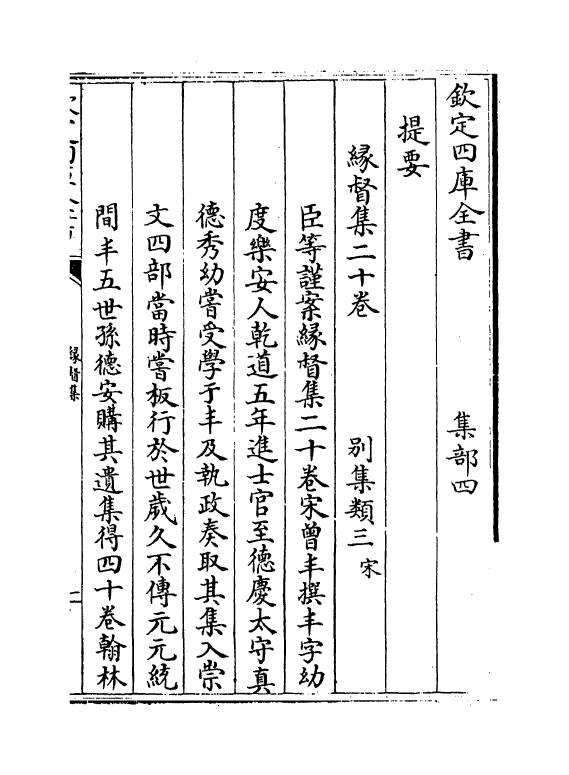 欽定四庫全書　集部四
提要
緣督集二十卷　別集類三宋
臣等謹案緣督集二十卷宋曾丰撰丰字幼
度樂安人乾道五年進士官至德慶太守真
德秀幼嘗受學于丰及執政奏取其集入崇
文四部當時嘗板行於世歲久不傳元元統
間丰五世孫德安購其遺集得四十卷翰林
緣督集